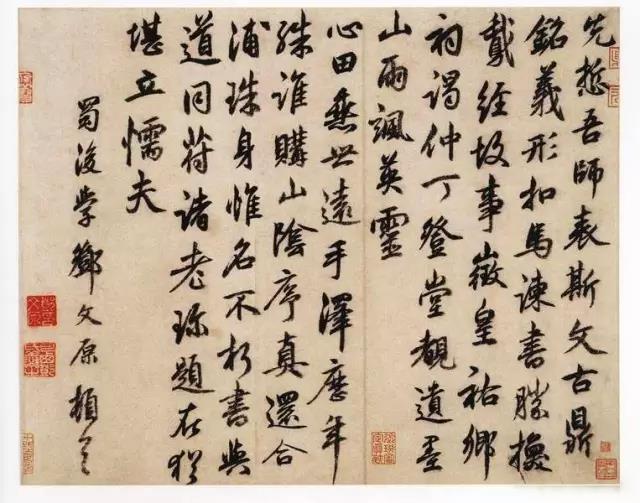 先悊吾師表斯文古鼎
銘義形扣馬諫書勝換
鵞經故事徵皇祐鄉
祠謁仲丁登堂觀遺墨
山雨颯英靈
心田無世遠手澤歷年
殊誰購山陰序真還合
浦珠身惟名不朽書與
道同符諸老珎題在猶
堪立懦夫
蜀後學鄧文原頓首